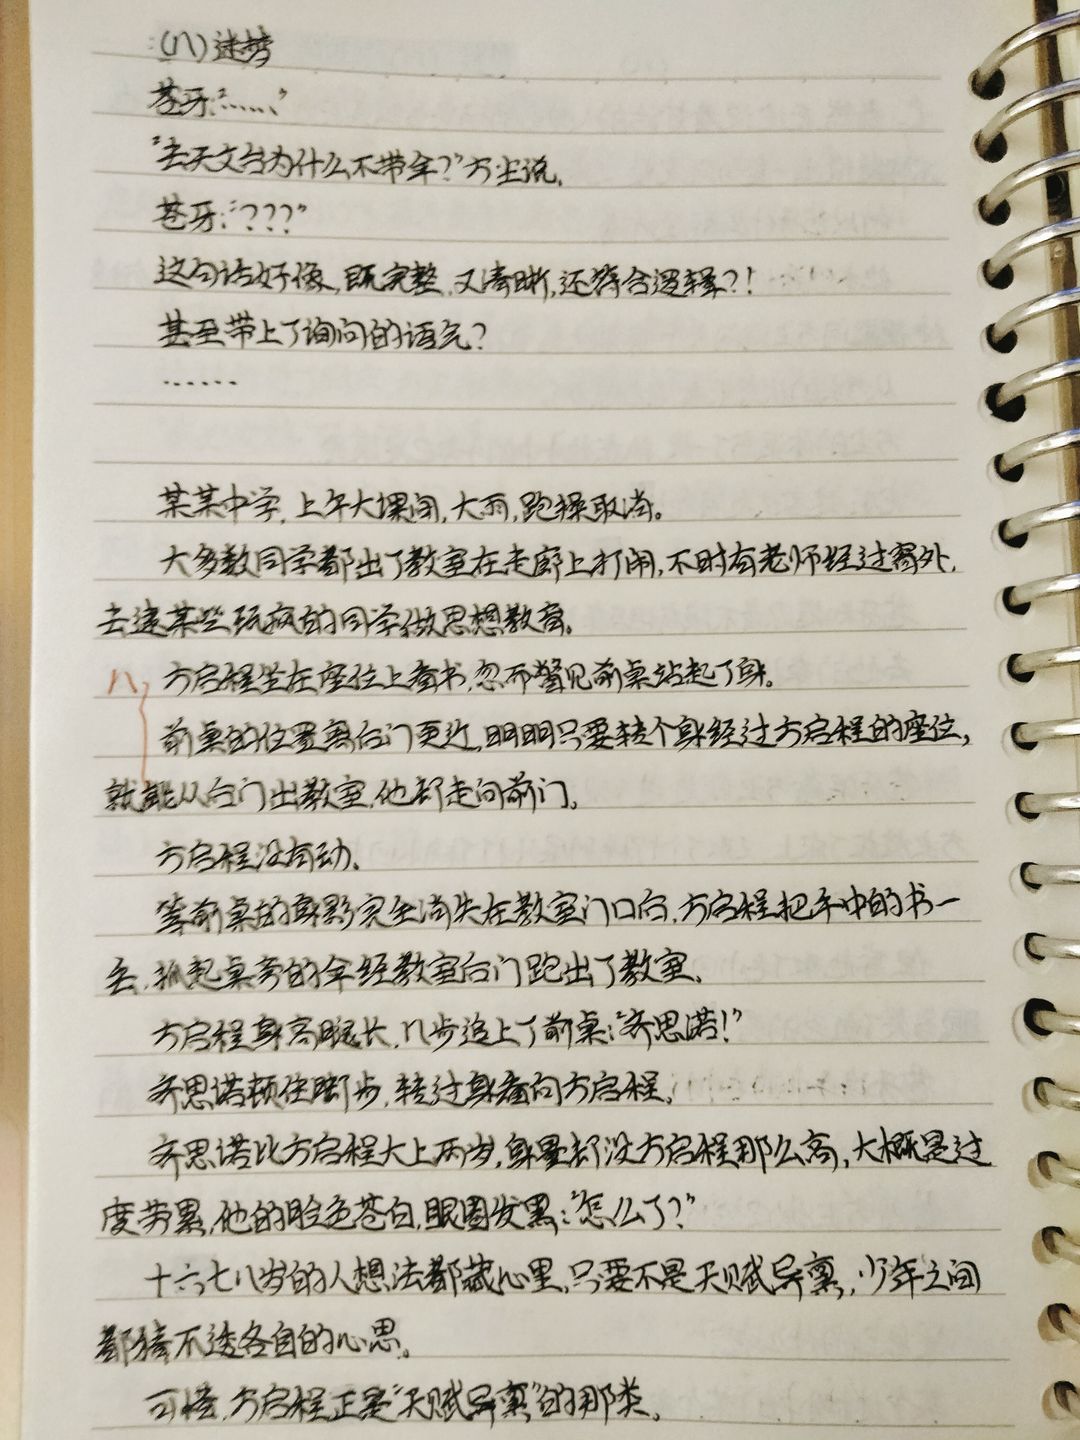 (八)迷梦
苍牙:“……”
“去天文台为什么不带伞?”方尘说。
苍牙:“???”
这句话好像,既完整,又清晰,还符合逻辑?!
甚至带上了询问的语气?
……
某某中学,上午大课间,大雨,跑操取消。
大多数同学都出了教室在走廊上打闹,不时有老师经过窗外,
去逮某些玩疯的同学做思想教育。
方启程坐在座位上看书,忽而瞥见前桌站起了身。
前桌的位置离后门更近,明明只要转个身经过方启程的座位,
就能从后门出教室,他却走向前门。
方启程没有动。
等前桌的身影完全消失在教室门口后,方启程把手中的书一
丢,抓起桌旁的伞经教室后门跑出了教室。
方启程身高腿长,几步追上了前桌:“齐思诺!”
齐思诺顿住脚步,转过身看向方启程。
齐思诺比方启程大上两岁,身量却没方启程那么高,大概是过
度劳累,他的脸色苍白,眼圈发黑:“怎么了?”
十六七八岁的人想法都藏心里,只要不是天赋异禀,少年之间
都猜不透各自的心思。
可惜,方启程正是“天赋异禀”的那类。